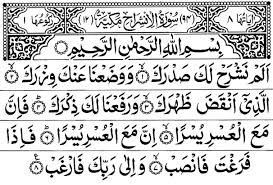 اٰیاتها ٨ (٩٤) سُوْرَةُ الْاِنْشِرَاحِ مَكِّيَّةٌ (١٢) رکوعها ١
بِسْمِ اللّٰهِ الرَّحْمٰنِ الرَّحِيْمِ
اَلَمْ نَشْرَحْ لَكَ صَدْرَكَ ۙ﴿١﴾ وَوَضَعْنَا عَنْكَ وِزْرَكَ ۙ﴿٢﴾
الَّذِيْٓ اَنْقَضَ ظَهْرَكَ ۙ﴿٣﴾ وَرَفَعْنَا لَكَ ذِكْرَكَ ؕ﴿٤﴾ فَاِنَّ
مَعَ الْعُسْرِ يُسْرًا ۙ﴿٥﴾ اِنَّ مَعَ الْعُسْرِ يُسْرًا ؕ﴿٦﴾ فَاِذَا
فَرَغْتَ فَانْصَبْ ۙ﴿٧﴾ وَاِلٰى رَبِّكَ فَارْغَبْ ﴿٨﴾